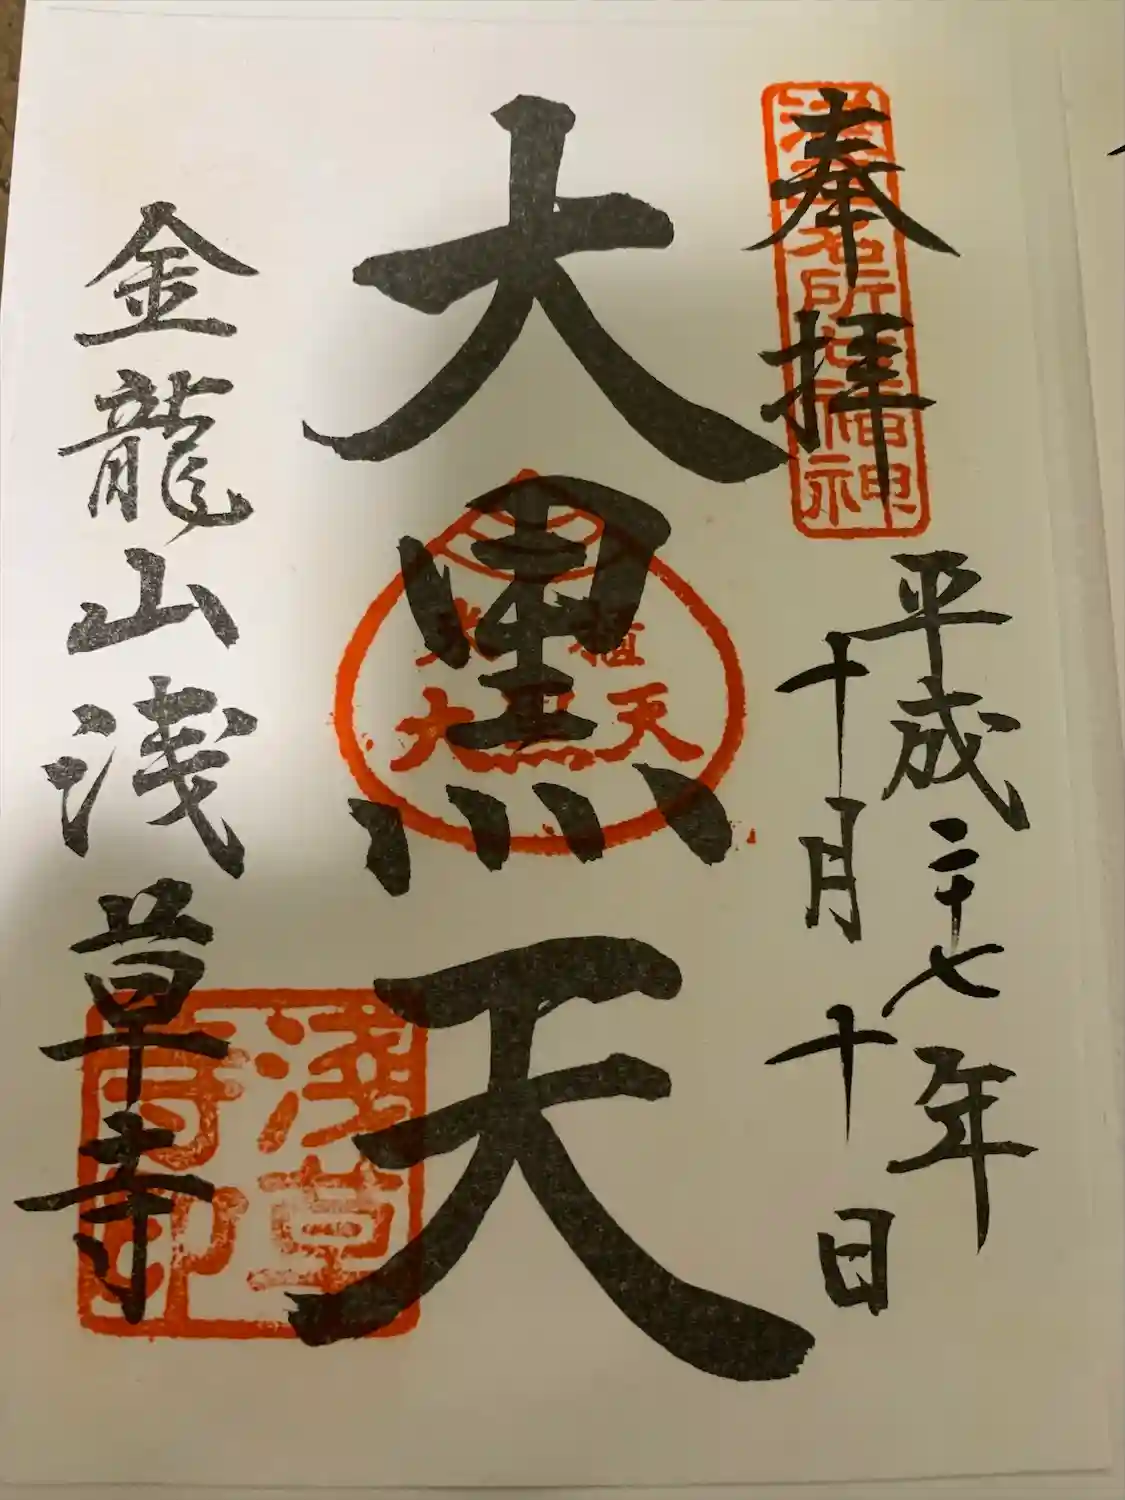 奉拝
浅草名所七福神
平成二十七年
十月十日
大黒天
米櫃
大黒天
金龍山浅草寺
浅草
寺印